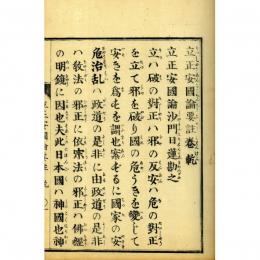 立正安國論要註卷乾
立正安國論沙門日蓮勘之
立ハ破の對正ハ邪の反安ハ危の對正
を立て邪を破り國の危うきを變して
安きを為もを謂也
危治乱ハ政道の是非に由政道の是非
ハ教法の邪正に依宗法の邪正ハ佛經
の明鏡に因也夫此日本國ハ神國也神